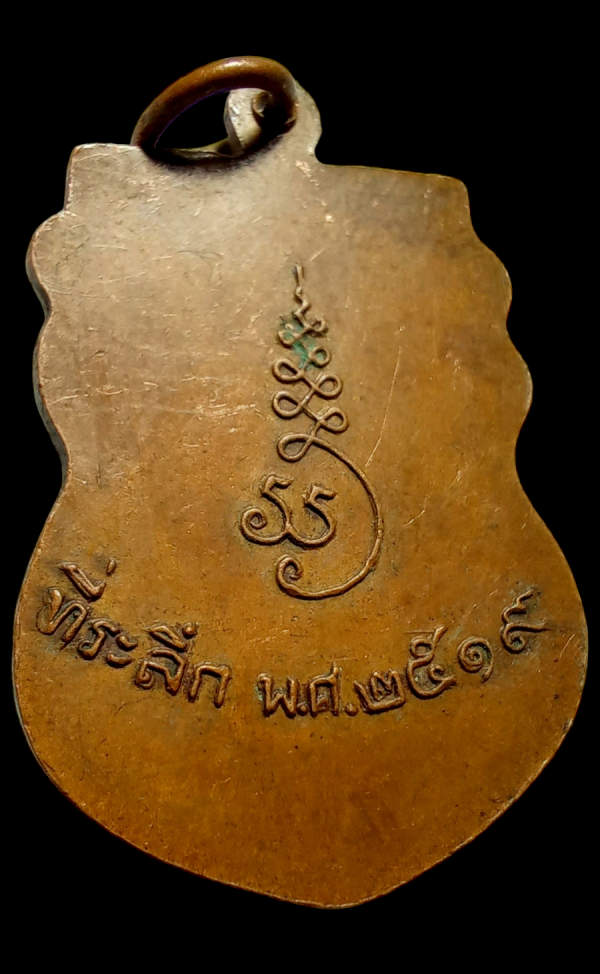 ที่ระลึก พ.ศ.๒๕๑๙